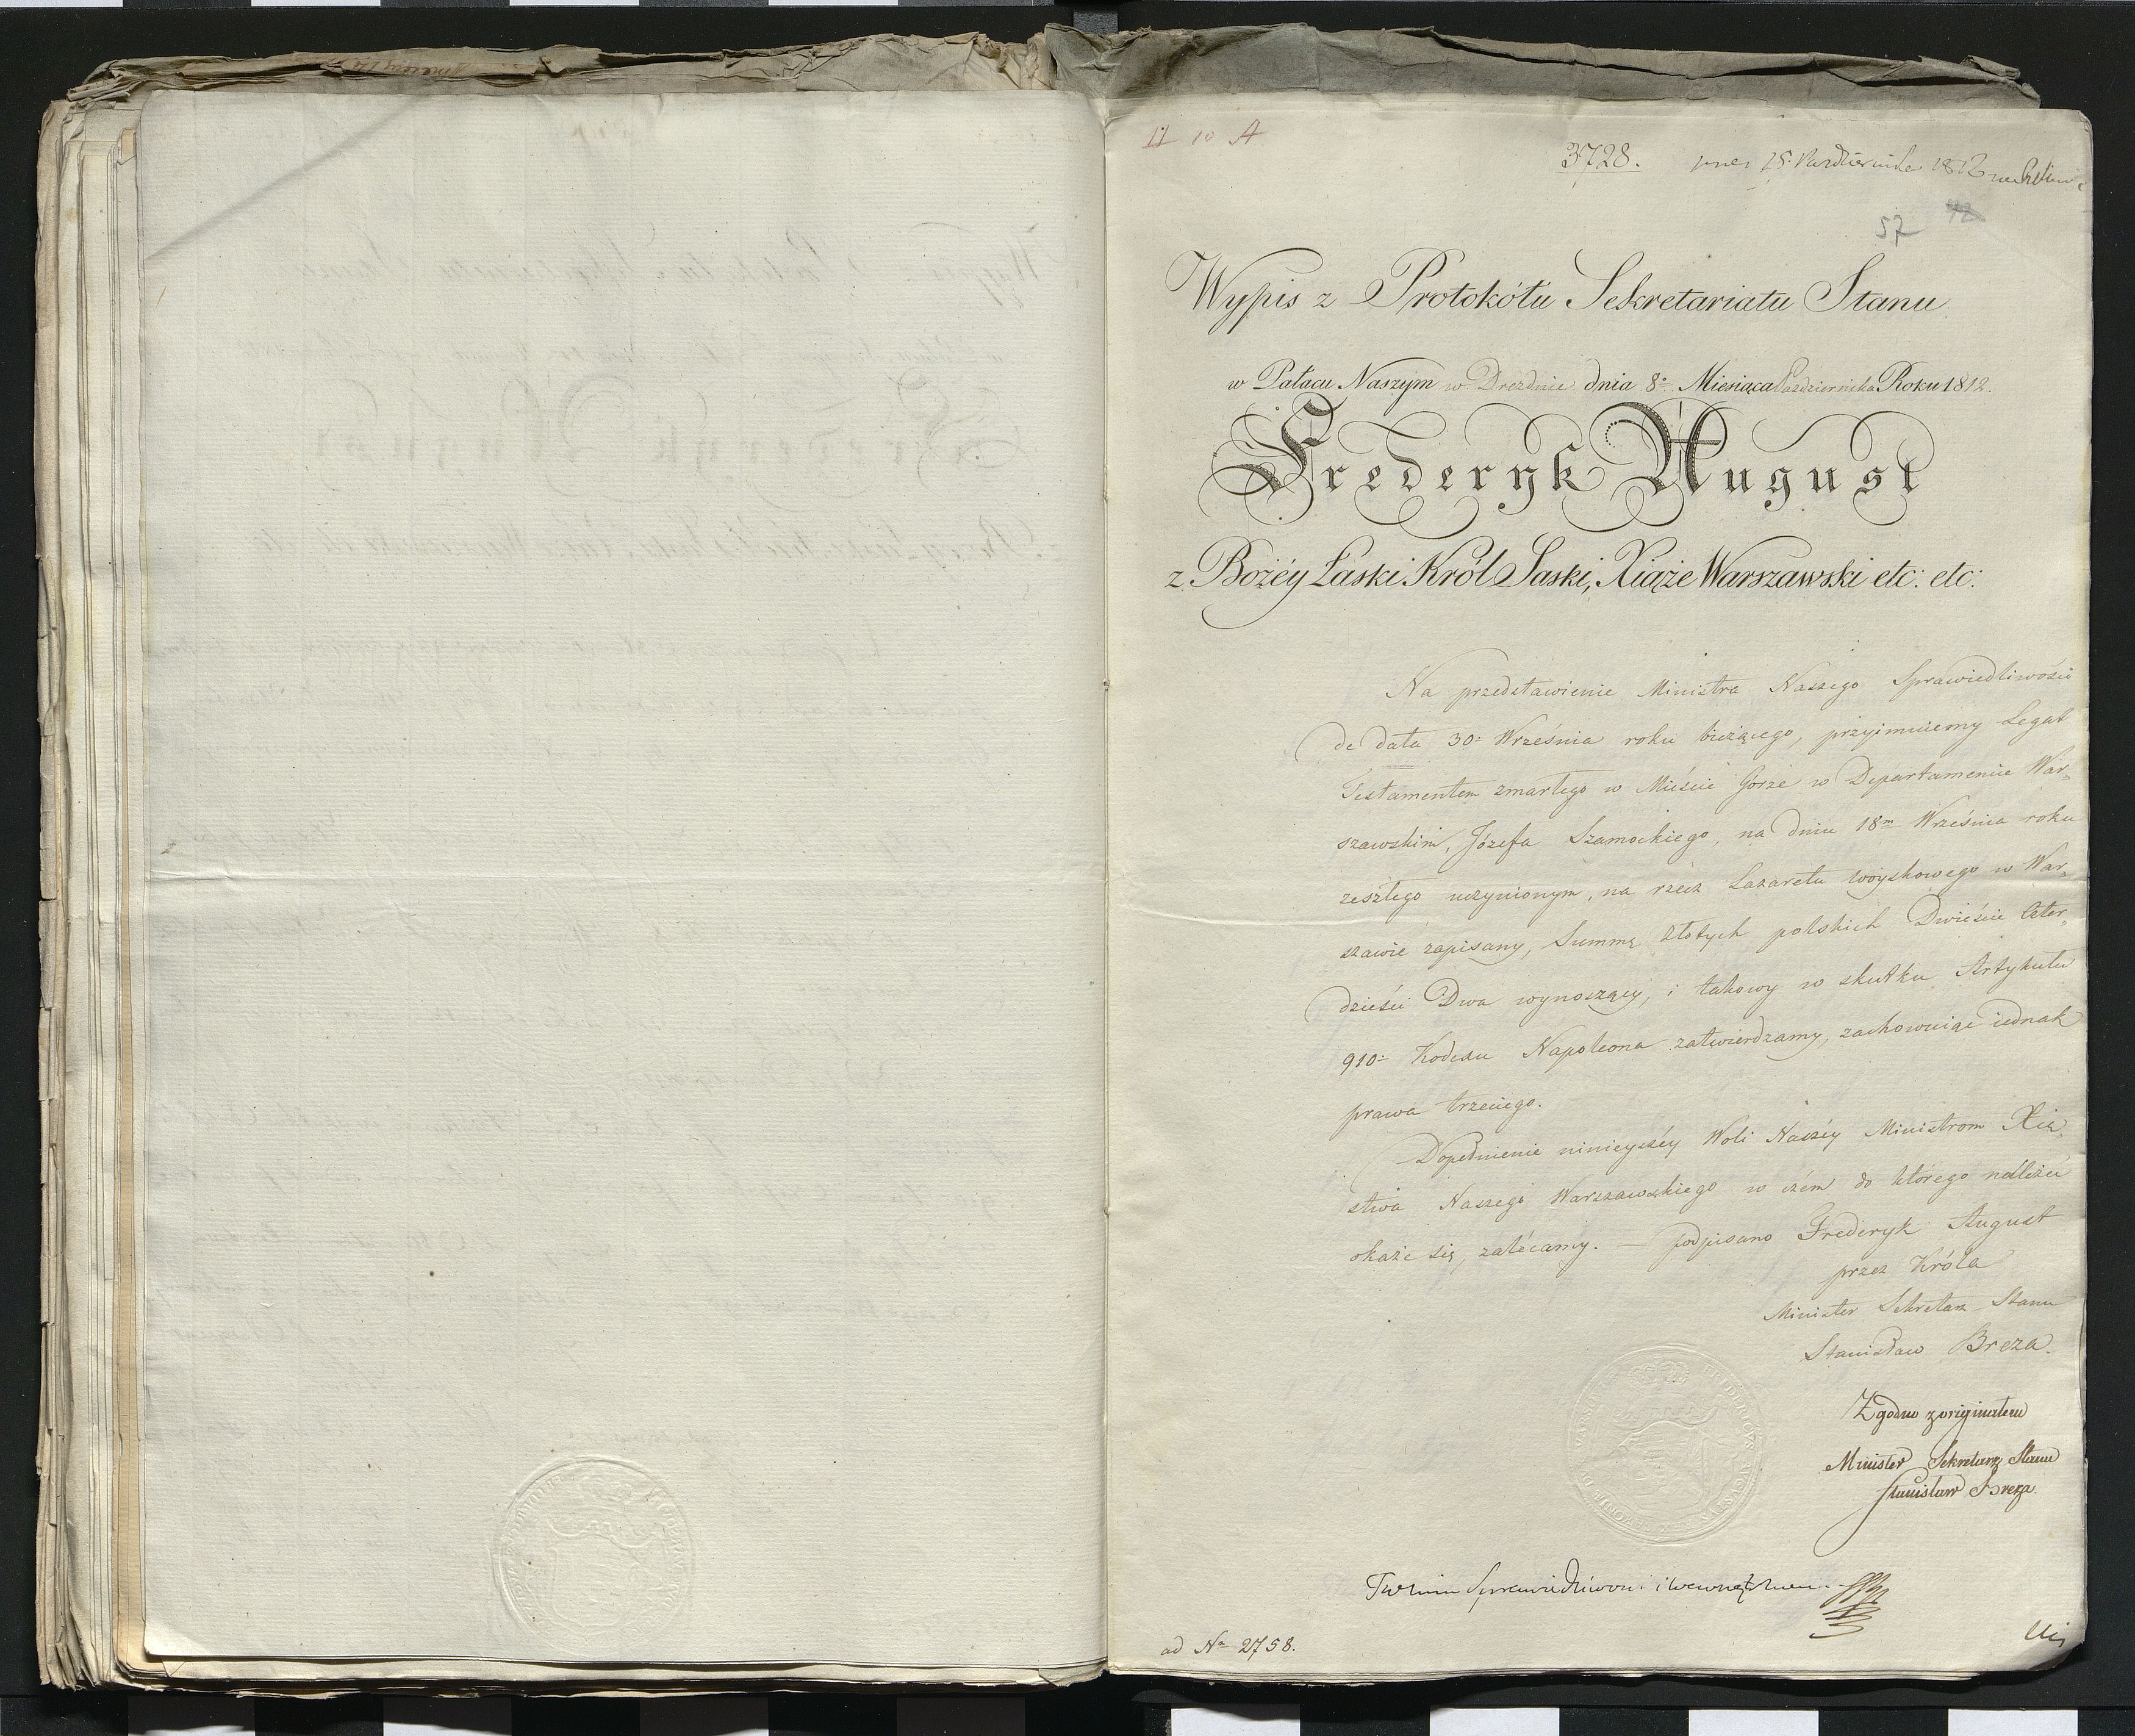 11 10 A
3728. 15 Października 1812
57 42
Wypis z Protokółu Sekretariatu Stanu
w Pałacu Naszym w Dreznie dnia 8º Miesiąca Października Roku 1812.
Frederyk August
z Bożéy Łaski Król Saski, Xiąże Warszawski etc: etc:
Na przedstawienie Ministra Naszego Sprawiedliwości
de dato 30º Września roku bieżącego, przyimuiemy Legat
Testamentem zmarłego w Mieście Górze w Departamencie War=
szawskim, Józefa Szamockiego, na dniu 18m Września roku
zeszłego uczynionym, na rzecz Lazaretu woyskowego w War=
szawie zapisany, Summę złotych polskich Dwieście Czter=
dzieści Dwa wynoszący, i takowy w skutku Artykułu
910º Kodexu Napoleona zatwierdzamy, zachowuiąc iednak
prawa trzeciego.
Dopełnienie ninieyszéy Woli Naszéy Ministrom Xię=
stwa Naszego Warszawskiego w czém do którego należeć
okaże się, zalécamy. — podpisano Frederyk August
przez Króla
Minister Sekretarz Stanu
Stanisław Breza.
Zgodno z oryginałem
Minister Sekretarz Stanu
Stanisław Breza.
Sprawiedliwości i wewnętrznem.
ad Nº 2758.